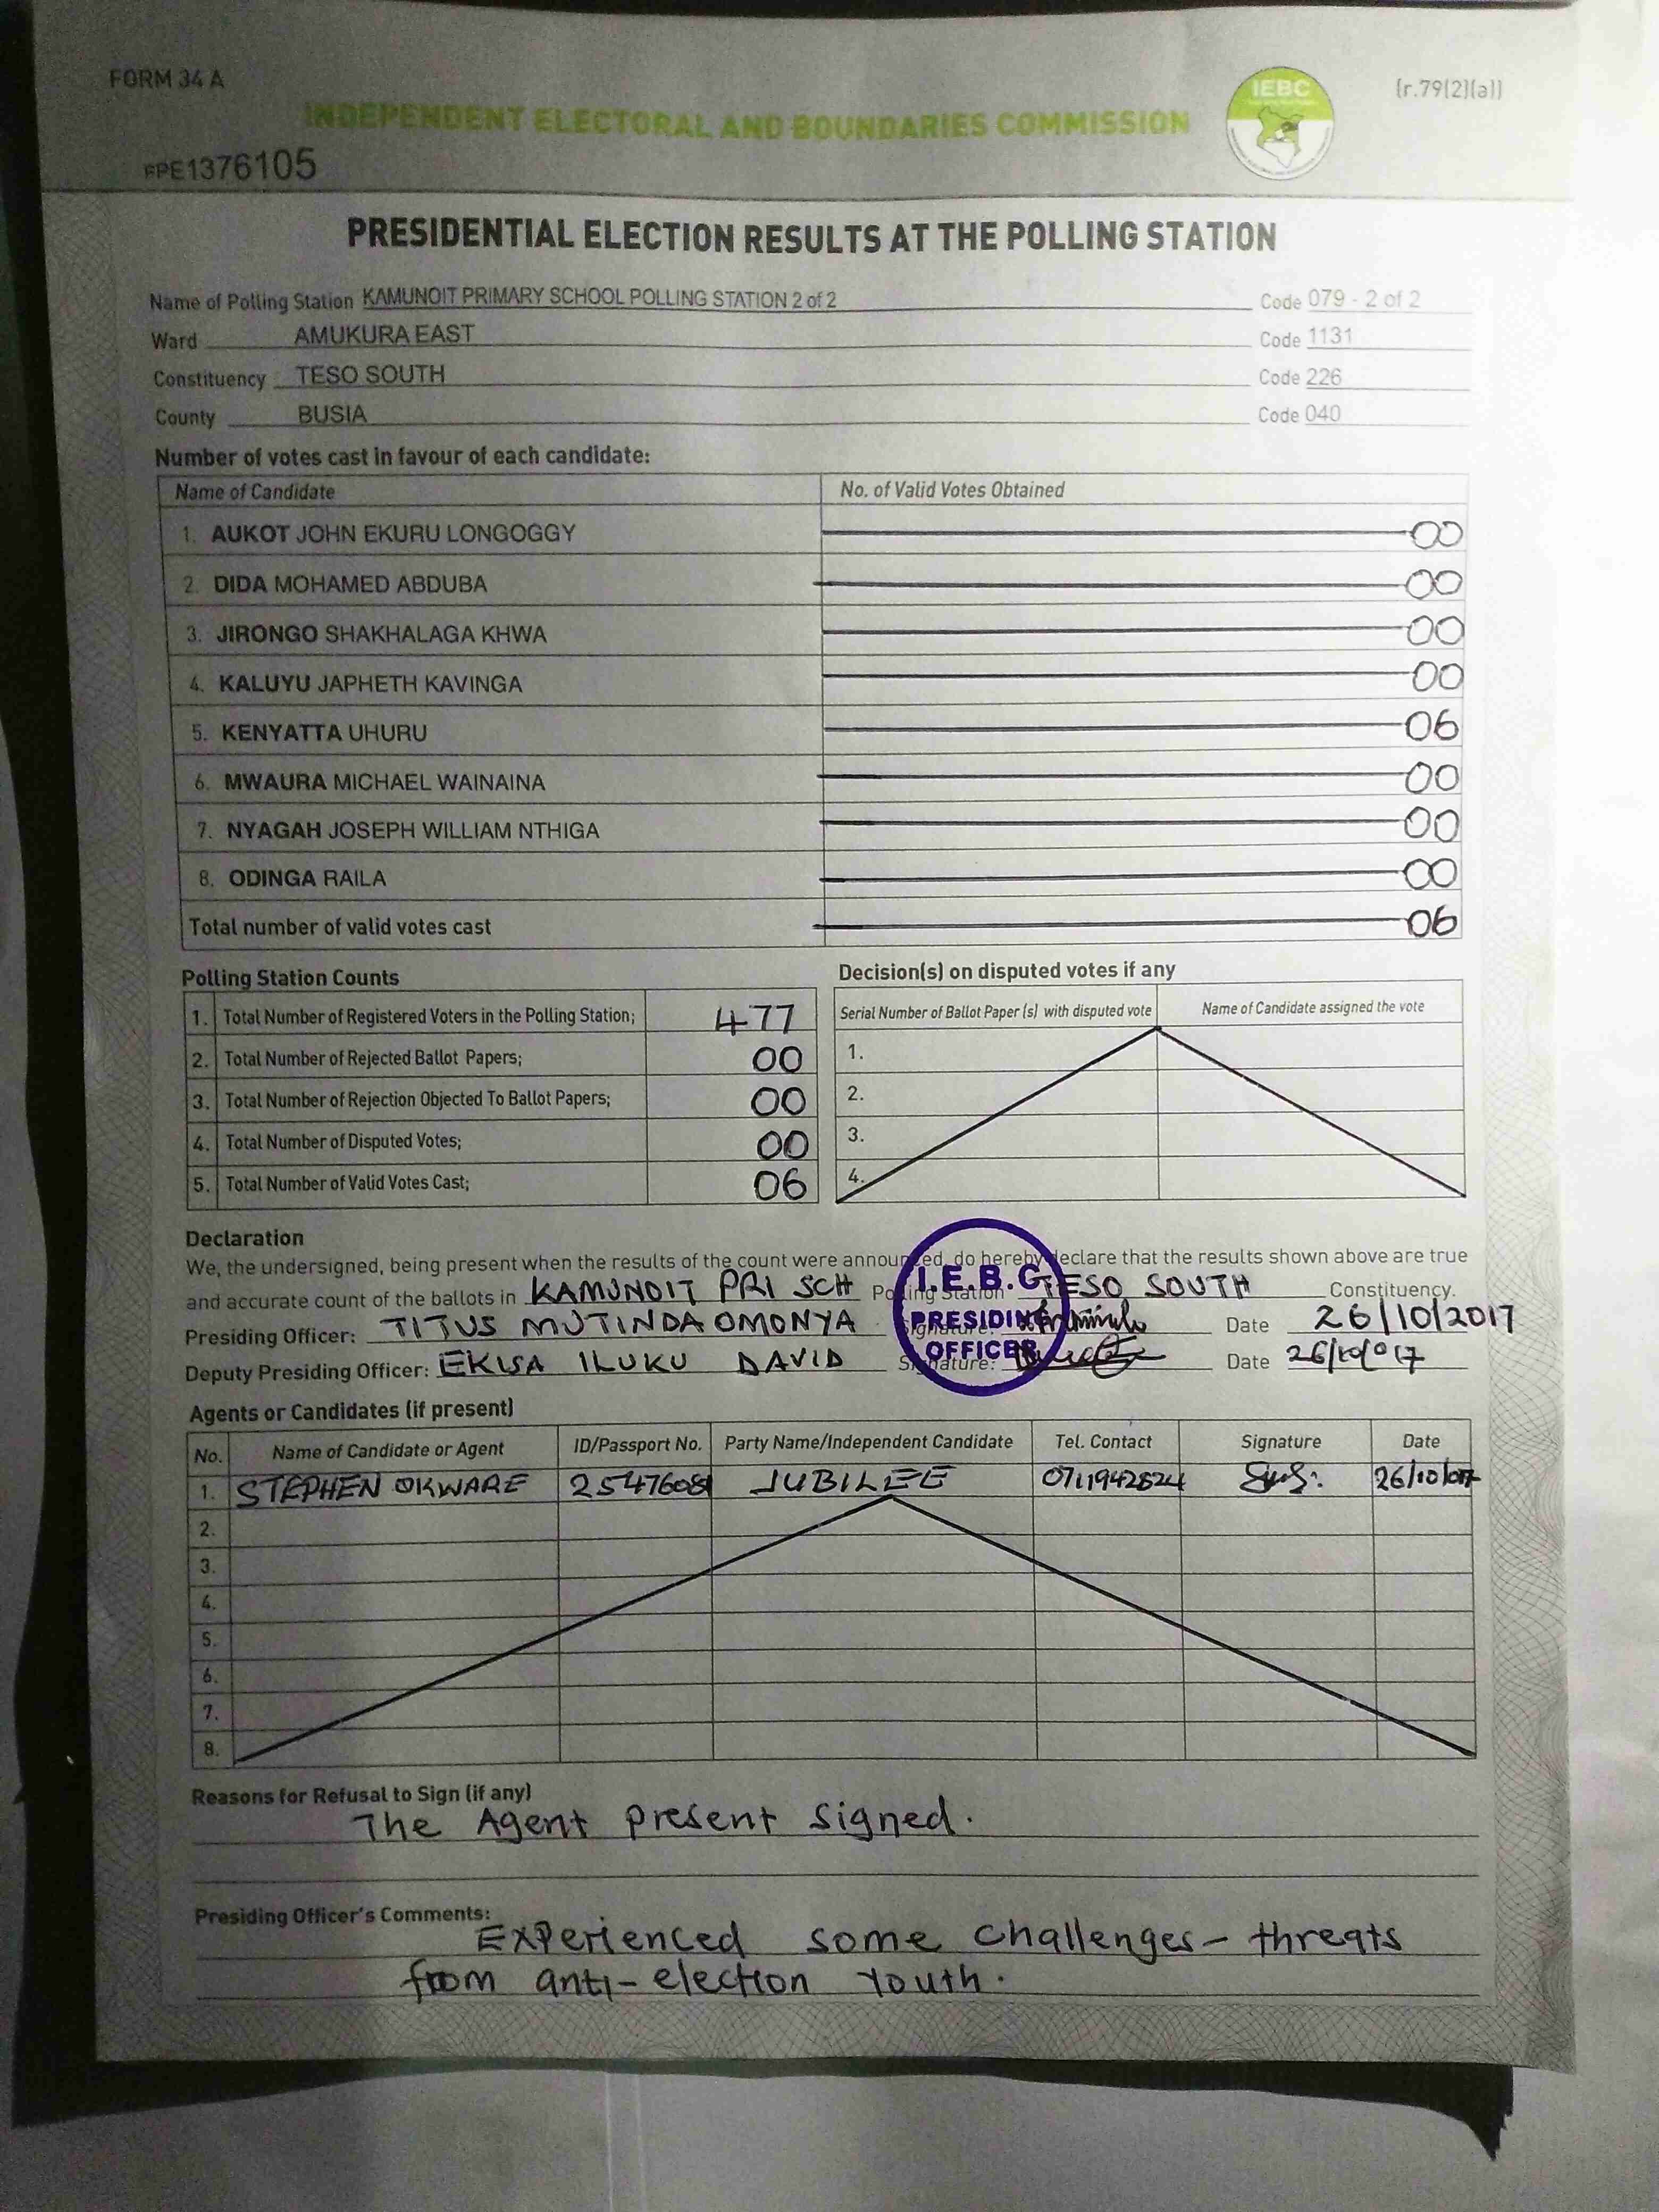 FORM 34 A
(r.79(2)(a))
IEBC
INDEPENDENT ELECTORAL AND BOUNDARIES COMMISSION
PPE1376105
PRESIDENTIAL ELECTION RESULTS AT THE POLLING STATION
Name of Polling Station KAMUNOIT PRIMARY SCHOOL POLLING STATION 2 of 2 Code 079 - 2 of 2
Ward AMUKURA EAST Code 1131
Constituency TESO SOUTH Code 226
County BUSIA Code 040
Number of votes cast in favour of each candidate:
Name of Candidate No. of Valid Votes Obtained
1. AUKOT JOHN EKURU LONGOGGY 00
2. DIDA MOHAMED ABDUBA 00
3. JIRONGO SHAKHALAGA KHWA 00
4. KALUYU JAPHETH KAVINGA 00
5. KENYATTA UHURU 06
6. MWAURA MICHAEL WAINAINA 00
7. NYAGAH JOSEPH WILLIAM NTHIGA 00
8. ODINGA RAILA 00
Total number of valid votes cast 06
Polling Station Counts
1. Total Number of Registered Voters in the Polling Station; 477
2. Total Number of Rejected Ballot Papers; 00
3. Total Number of Rejection Objected To Ballot Papers; 00
4. Total Number of Disputed Votes; 00
5. Total Number of Valid Votes Cast; 06
Decision(s) on disputed votes if any
Serial Number of Ballot Paper (s) with disputed vote Name of Candidate assigned the vote
1.
2.
3.
4.
Declaration
We, the undersigned, being present when the results of the count were announced, do hereby declare that the results shown above are true
and accurate count of the ballots in KAMUNOIT PRI SCH Polling Station TESO SOUTH Constituency.
Presiding Officer: TITUS MUTINDA OMONYA Signature: Date 26/10/2017
Deputy Presiding Officer: EKISA ILUKU DAVID Signature: Date 26/10/017
I.E.B.C
PRESIDING
OFFICER
Agents or Candidates (if present)
No. Name of Candidate or Agent ID/Passport No. Party Name/Independent Candidate Tel. Contact Signature Date
1. STEPHEN OKWARE 25476081 JUBILEE 0711942824 26/10/017
2.
3.
4.
5.
6.
7.
8.
Reasons for Refusal to Sign (if any)
The Agent present signed.
Presiding Officer's Comments:
Experienced some challenges - threats
from anti-election youth.